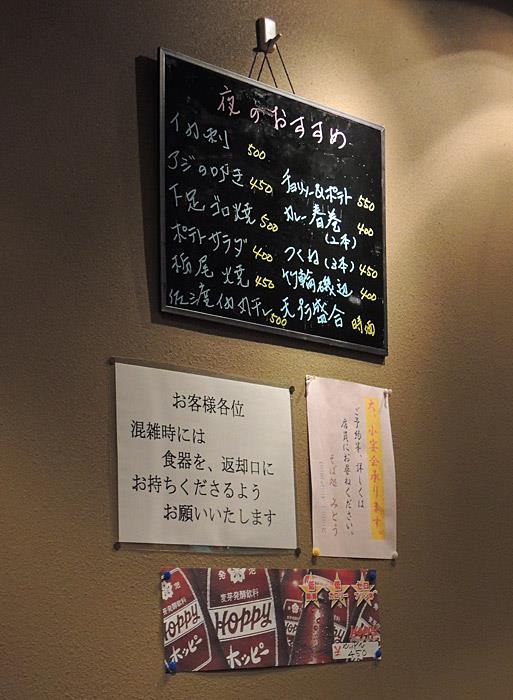 夜のおすすめ
イカ刺 500
アジのひらき 450
下足ゴロ焼 500
ポテトサラダ 400
栃尾焼 450
佐渡イカ丸干し 500
チョリソー&ポテト 550
カレー春巻(2本) 400
つくね(3本) 450
竹輪磯辺 400
天ぷら盛合 時価
お客様各位
混雑時には
食器を、返却口に
お持ちくださるよう
お願いいたします
大、小宴会承ります。
ご予約等、詳しくは
店員にお尋ねください。
そば処 みとう
発泡
麦芽発酵飲料
HOPPY
ホッピー
発泡
麦芽発酵飲料
HOPPY
ホッピー
低
低
ゼロ
450